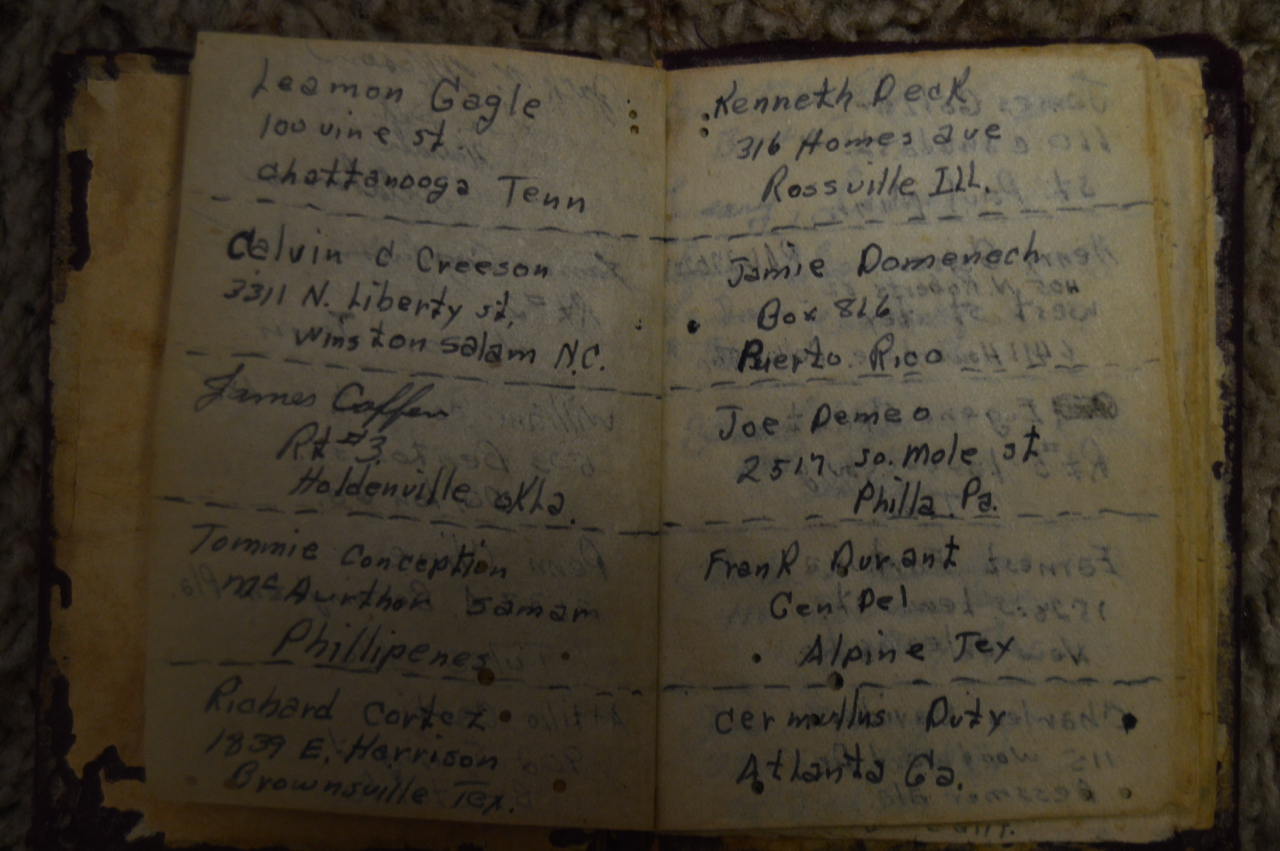 Leamon Gagle
100 vine st.
Chattanooga Tenn
Calvin C Creeson
3311 N. Liberty st,
Winston Salam N.C.
James Coffer
Rt #3
Holdenville okla.
Tommie Conception
Mc Aurthor Samam
Phillipenes
Richard Cortez
1839 E. Harrison
Brownsville Tex.
Kenneth Deck
316 Homes ave
Rossville ILL.
Jamie Domenech
Box 816
Puerto Rico
Joe Demeo
2517 so. Mole st
Philla Pa.
Frank Durant
Gen Del
Alpine Tex
Duty
Atlanta Ga.